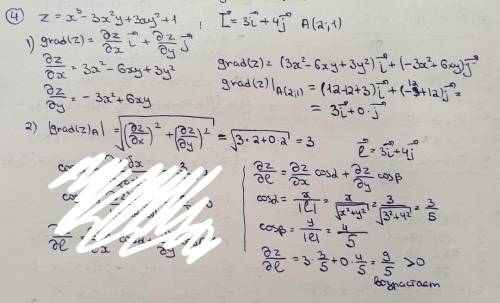 ④ z = x³ - 3x²y + 3xy² + 1 ; L⃗ = 3i⃗ + 4j⃗ A(2;1)
1) grad(z) = ∂z/∂x i⃗ + ∂z/∂y j⃗
∂z/∂x = 3x² - 6xy + 3y²
∂z/∂y = -3x² + 6xy
grad(z) = (3x² - 6xy + 3y²) i⃗ + (-3x² + 6xy) j⃗
grad(z)|A(2;1) = (12 - 12 + 3) i⃗ + (-12 + 12) j⃗ =
= 3i⃗ + 0·j⃗
2) |grad(z)A| = √((∂z/∂x)² + (∂z/∂y)²) = √(3·2 + 0·2) = 3
l⃗ = 3i⃗ + 4j⃗
∂z/∂l = ∂z/∂x cosα + ∂z/∂y cosβ
cosα = x/|l| = x/√(x² + y²) = 3/√(3² + 4²) = 3/5
cosβ = y/|l| = 4/5
∂z/∂l = 3·3/5 + 0·4/5 = 9/5 > 0
возрастает